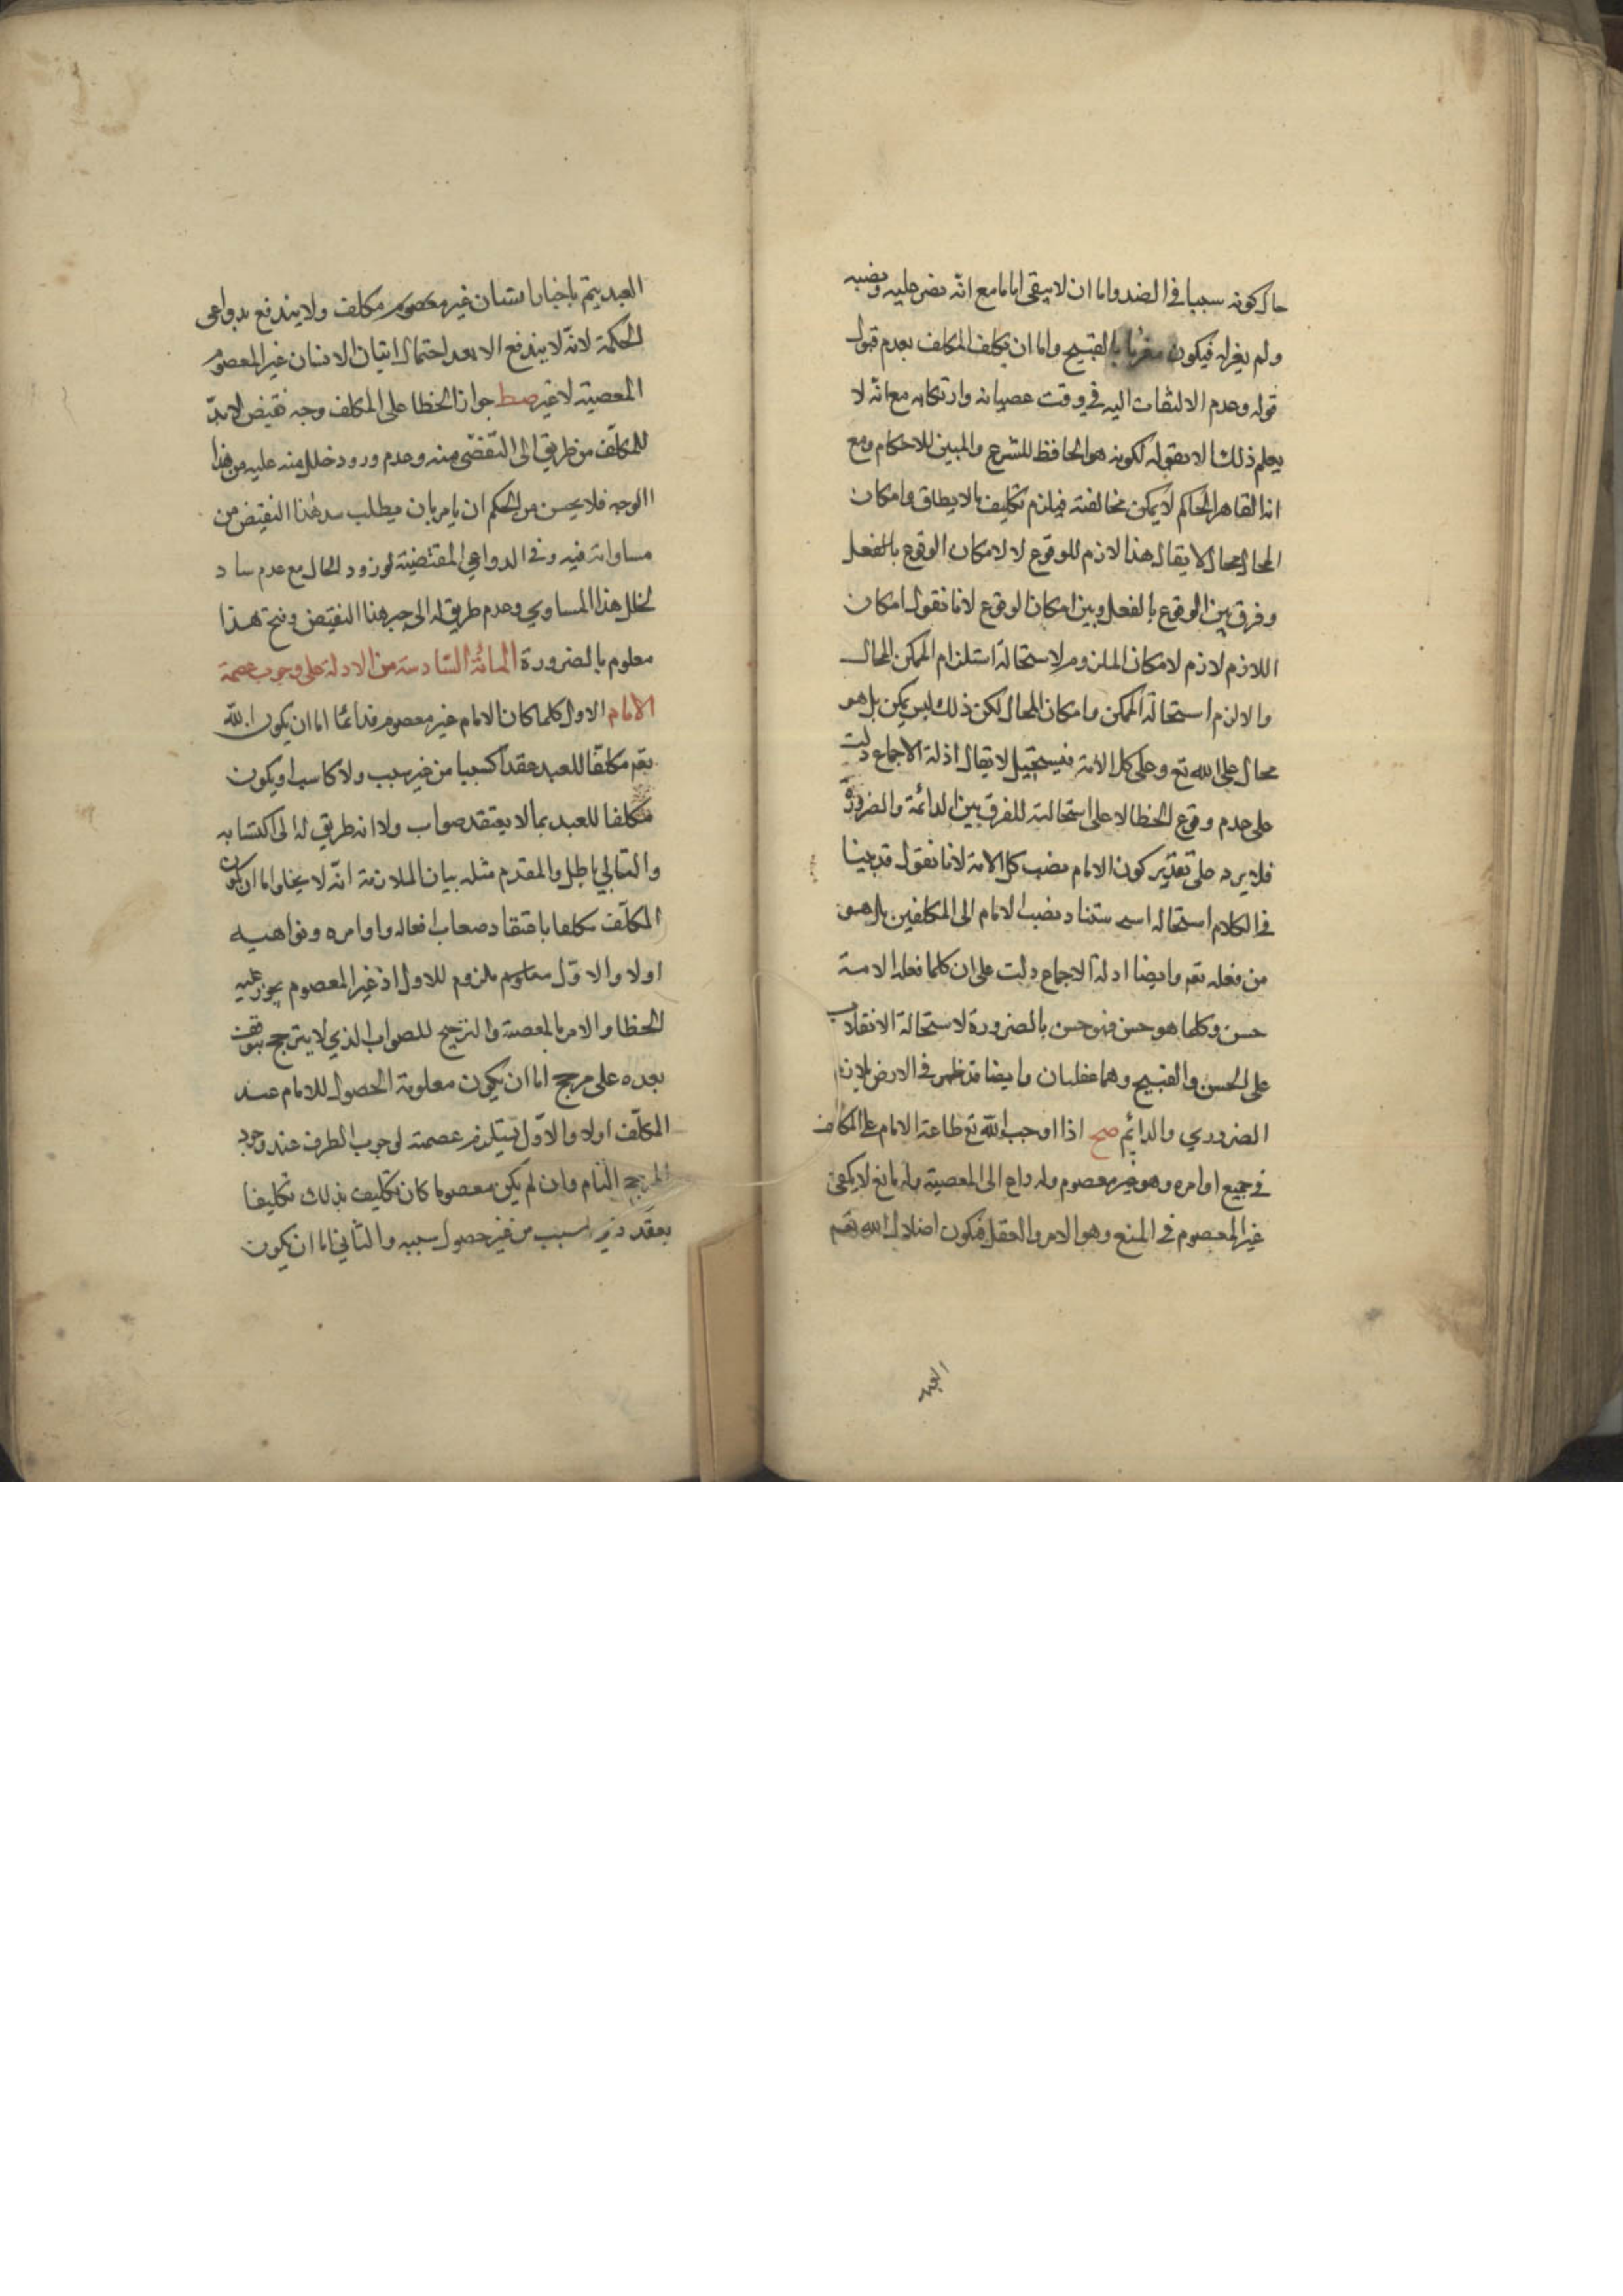 حال كونه سببا في الضد واما ان لا يبقى اماما مع انه نص عليه ونصبه
ولم يعزله فيكون مغريا بالقبيح واما ان يكلف المكلف بعدم قبول
قوله وعدم الالتفات اليه في وقت عصيانه وارتكابه مع انه لا
يعلم ذلك الا بقوله لكونه هو الحافظ للشرع والمبين للاحكام ومع
انه القاهر الحاكم لا يمكن مخالفته فيلزم تكليف ما لا يطاق وامكان
المحال محال لا يقال هذا لازم للوقوع لا لامكان الوقوع بالفعل
وفرق بين الوقوع بالفعل وبين امكان الوقوع لانا نقول امكان
اللازم لازم لامكان الملزوم لاستحالة استلزام الممكن المحال
والا لزم استحالة الممكن وامكان المحال لكن ذلك ليس يمكن بل هو
محال على الله تع وعلى كل الامة فيستحيل لا يقال ادلة الاجماع دلت
على عدم وقوع الخطا لا على استحالته للفرق بين الدائمة والضرورة
فلا يرد على تقدير كون الامام نصب كل الامة لانا نقول قد بينا
في الكلام استحالة استناد نصب الامام الى المكلفين بل هو
من فعله تعم وايضا ادلة الاجماع دلت على ان كلما فعله الامة
حسن وكلما هو حسن فهو حسن بالضرورة لاستحالة الانقلاب
على الحسن والقبيح وهما عقليان وايضا قد ظهر في الارض ملازمة
الضروري والدائم صح اذا اوجب الله تع طاعة الامام على المكلف
في جميع اوامره وهو غير معصوم وله داع الى المعصية وله مانع لا يكفي
غير المعصوم في المنع وهو الامر والعقل فيكون اضلال الله تعم
العبد
العبد يتم باخبار انسان غير معصوم مكلف ولا يندفع بدواعي
الحكمة لانه لا يندفع الا بعد احتمال اتيان الانسان غير المعصوم
المعصية لا غير صط جواز الخطا على المكلف وجه نقيض لا بد
للمكلف من طريق الى التفصى منه وعدم ورود خلل منه عليه من هذا
الوجه فلا يحسن من الحكم ان يامر بان يطلب سد هذا النقيض من
مساواته فيه وفي الدواعي المقتضية لورود الحال مع عدم ساد
لخلل هذا المساوي وعدم طريق له الى جبر هذا النقيض وقبح هذا
معلوم بالضرورة المائة السادسة من الادلة على وجوب عصمة
الامام الاول كلما كان الامام غير معصوم فدائما اما ان يكون الله
تعم مكلفا للعبد عقدا كسبيا من غير سبب ولا كاسب او يكون
مكلفا للعبد بما لا يعتقد صواب ولا انه طريق له الى اكتسابه
والتالي باطل والمقدم مثله بيان الملازمة انه لا يخلوا اما ان يكون
المكلف مكلفا باعتقاد صعاب افعاله واوامره ونواهيه
اولا والاول ملزوم للاول اذ غير المعصوم يجوز عليه
الخطا والامر بالمعصية والترجيح للصواب الذي لا يترجح بتوقف
بعده على مرجح اما ان يكون معلومة الحصول للامام عند
المكلف اولا والاول يستلزم عصمته لوجوب الطرف عند وجود
المرجح التام وان لم يكن معصوما كان تكليف بذلك تكليفا
بعقد السبب من غير حصول سببه والثاني اما ان يكون